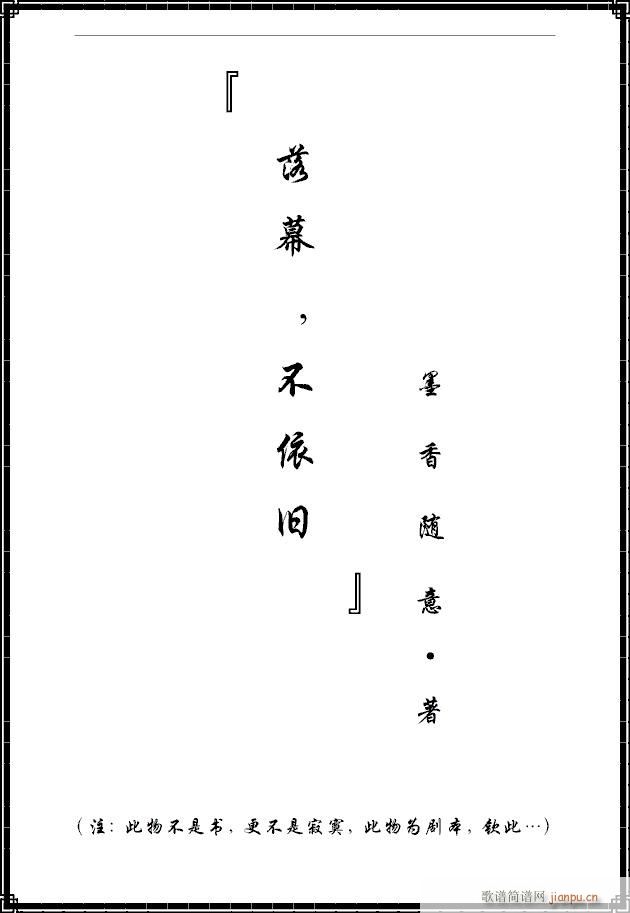 『落幕，不依旧』
墨香随意·著
（注：此物不是书，更不是寂寞，此物为剧本，钦此…）
歌谱简谱网
jianpu.cn